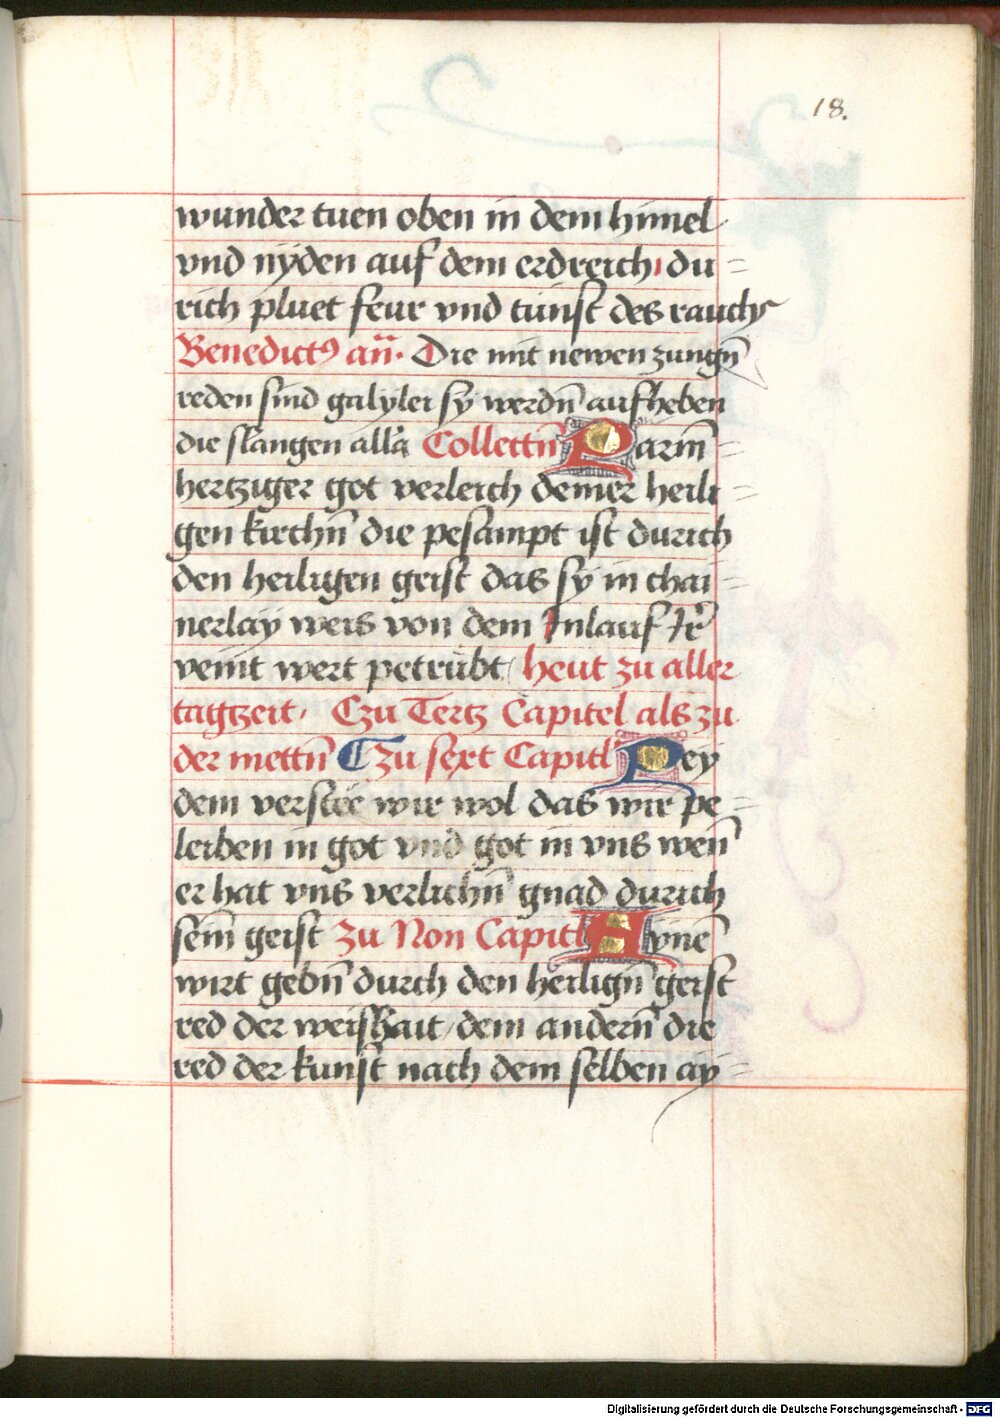 18.
wunder tuen oben in dem himel
vnd nyden auf dem erdreich du=
rich pluet feur vnd tunst des rauchs
Benedictꝰ an̄. Die mit newen zungn̄
reden sind galyler sy werdn̄ aufheben
die slangen alla Collectn̄ Parm̄=
hertziger got verleich deiner heili=
gen kirchn̄ die pesampt ist durich
den heiligen geist das sy in chai=
nerlay weis von dem Inlauf Ir̄
veint wert petrubt heut zu aller
tagtzeit. Czu Tertz Capitel als zu
der mettn̄ Czu sext Capitl̄ Pey
dem verstee wir wol das wir pe=
leiben in got vnd got in vns wen̄
er hat vns verlichn̄ gnad durich
sein̄ geist zu Non Capitl Aynē
wirt gebn̄ durch den heilign̄ geist
red der weishait dem andern̄ die
red der kunst nach dem selben ay=
Digitalisierung gefördert durch die Deutsche Forschungsgemeinschaft - DFG